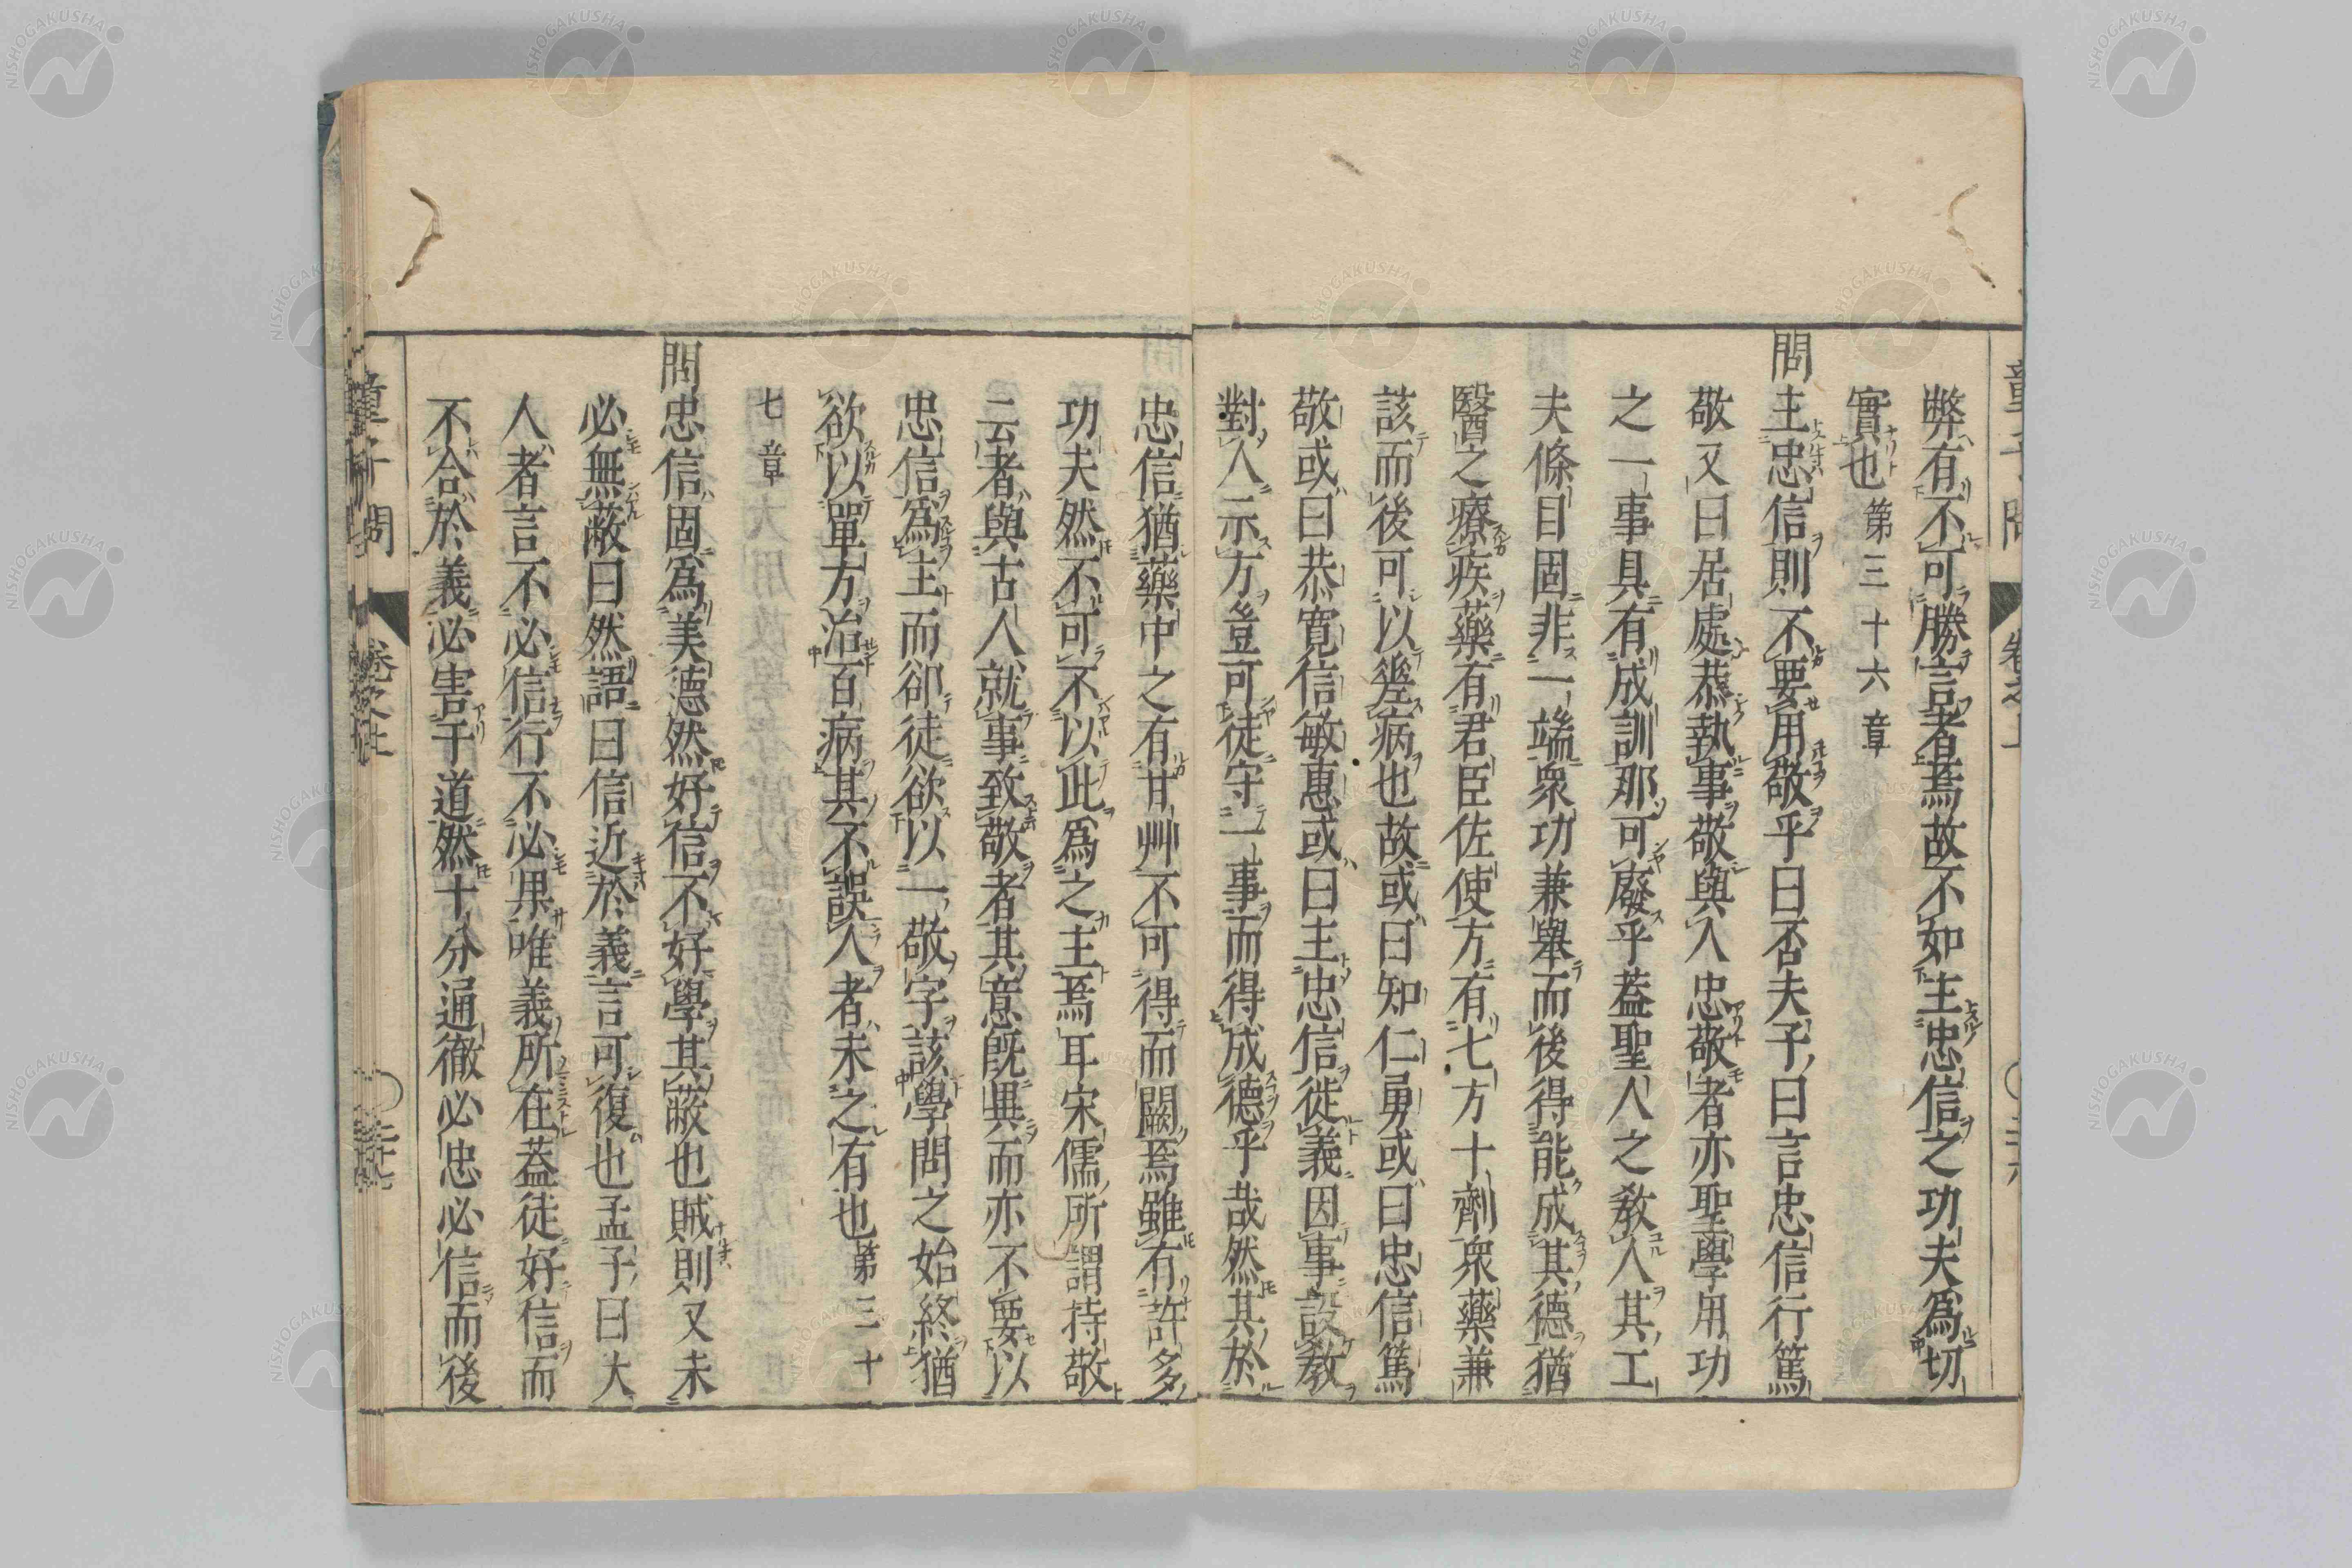 弊有不可勝言者焉故不如主忠信之功夫爲切
實也 第三十六章
問主忠信則不要用敬乎曰否夫子曰言忠信行篤
敬又曰居處恭執事敬與人忠敬者亦聖學用功
之一事具有成訓那可廢乎蓋聖人之教人其工
夫條目固非一端衆功兼舉而後得能成其德猶
醫之療疾藥有君臣佐使方有七方十劑衆藥兼
該而後可以瘥病也故或曰知仁勇或曰忠信篤
敬或曰恭寬信敏惠或曰主忠信徙義因事設教
對人示方豈可徒守一事而得成德乎哉然其於
忠信猶藥中之有甘艸不可得而闕焉雖有許多
功夫然不可不以此爲之主焉耳宋儒所謂持敬
云者與古人就事致敬者其意旣異而亦不要以
忠信爲主而卻徒欲以一敬字該學問之始終猶
欲以單方治百病其不誤人者未之有也 第三十
七章
問忠信固爲美德然好信不好學其蔽也賊則又未
必無蔽曰然語曰信近於義言可復也孟子曰大
人者言不必信行不必果唯義所在蓋徒好信而
不合於義必害于道然十分通徹必忠必信而後
童子問 卷之上
NISHOGAKUSHA